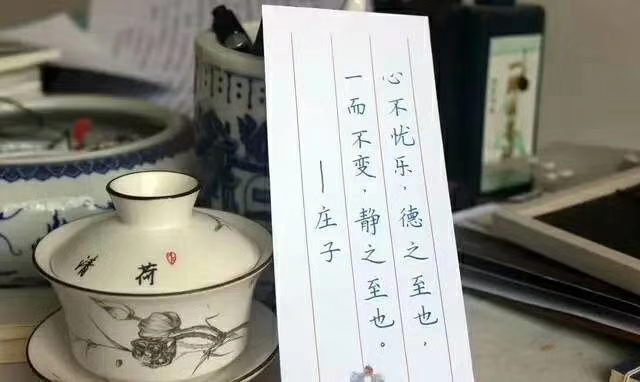 心不忧乐,德之至也,
一而不变,静之至也。
—庄子
荷